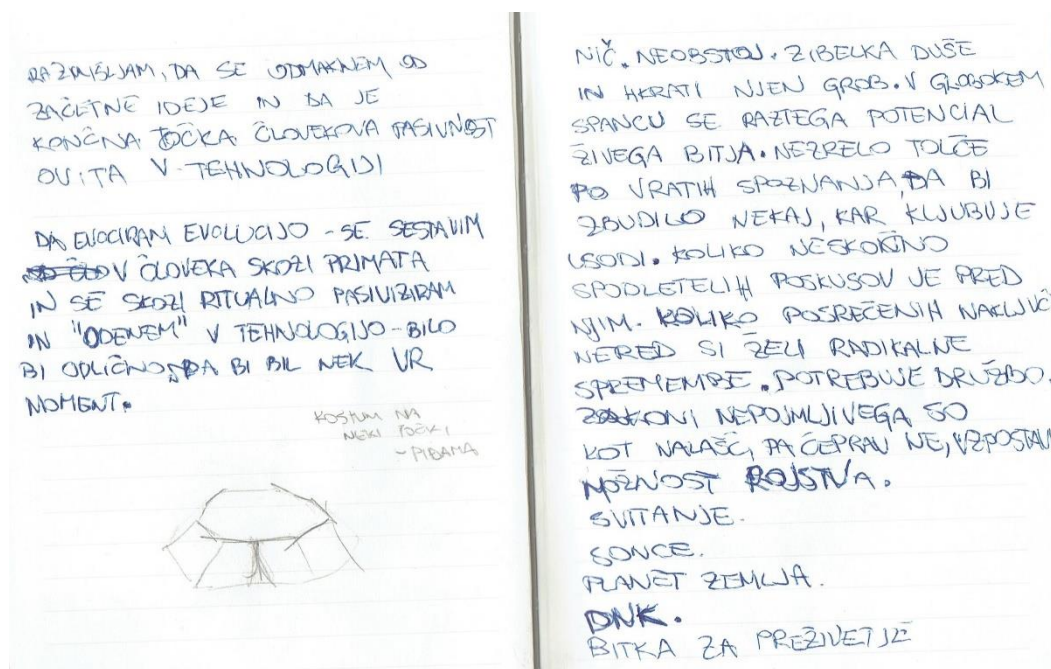 RAZMIŠLJAM, DA SE ODMAKNEM OD
ZAČETNE IDEJE IN DA JE
KONČNA TOČKA ČLOVEKOVA PASIVNOST
OVITA V TEHNOLOGIJI
DA EVOCIRAM EVOLUCIJO - SE SESTAVIM
V ČLOVEKA SKOZI PRIMATA
IN SE SKOZI RITUALNO PASIVIZIRAM
IN "ODENEM" V TEHNOLOGIJO - BILO
BI ODLIČNO, DA BI BIL NEK VR
MOMENT.
KOSTUM NA
NEKI TOČKI
- PIDAMA
NIČ. NEOBSTOJ. ZIBELKA DUŠE
IN HKRATI NJEN GROB. V GLOBOKEM
SPANCU SE RAZTEGA POTENCIAL
ŽIVEGA BITJA. NEZRELO TOLČE
PO VRATIH SPOZNANJA, DA BI
ZBUDILO NEKAJ, KAR KLJUBUJE
USODI. KOLIKO NESKONČNO
SPODLETELIH POSKUSOV JE PRED
NJIM. KOLIKO POSREČENIH NAKLJUČ
NERED SI ŽELI RADIKALNE
SPREMEMBE. POTREBUJE DRUŽBO.
ZAKONI NEPOJMLJIVEGA SO
KOT NALAŠČ, PA ČEPRAV NE, VZPOSTAV
MOŽNOST ROJSTVA.
SVITANJE.
SONCE.
PLANET ZEMLJA.
DNK.
BITKA ZA PREŽIVETJE